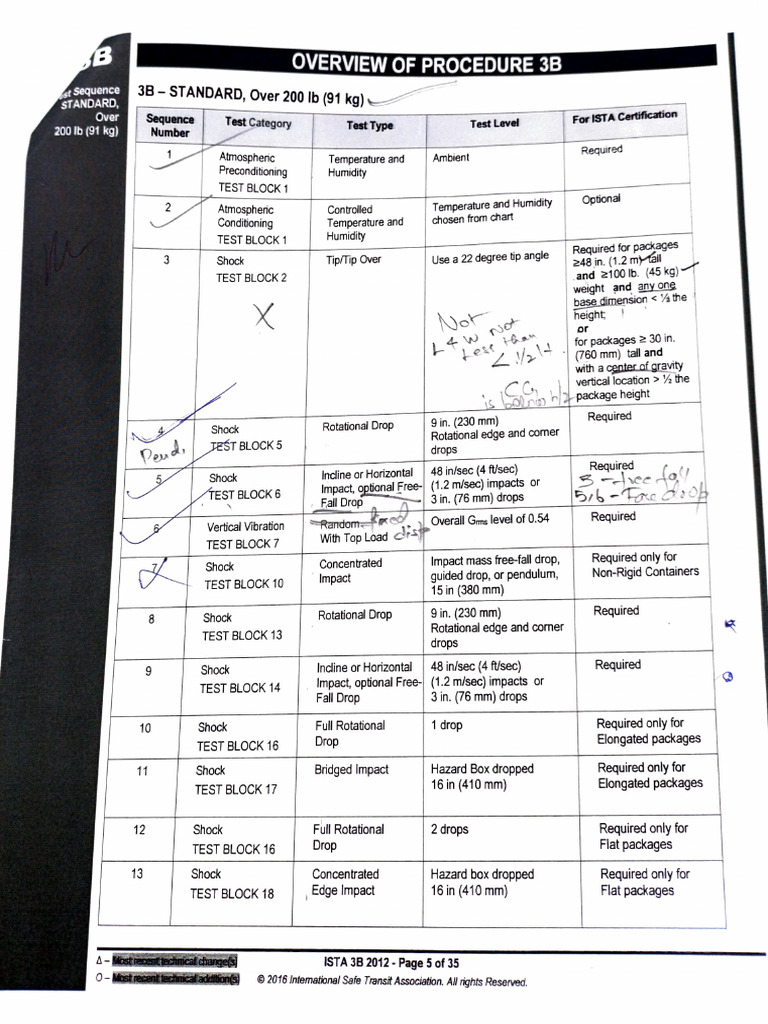 3B
OVERVIEW OF PROCEDURE 3B
Test Sequence
STANDARD,
Over
200 lb (91 kg)
3B – STANDARD, Over 200 lb (91 kg)
Sequence Number | Test Category | Test Type | Test Level | For ISTA Certification
1 | Atmospheric Preconditioning TEST BLOCK 1 | Temperature and Humidity | Ambient | Required
2 | Atmospheric Conditioning TEST BLOCK 1 | Controlled Temperature and Humidity | Temperature and Humidity chosen from chart | Optional
3 | Shock TEST BLOCK 2 | Tip/Tip Over | Use a 22 degree tip angle | Required for packages ≥48 in. (1.2 m) tall and ≥100 lb. (45 kg) weight and any one base dimension < ½ the height; or for packages ≥ 30 in. (760 mm) tall and with a center of gravity vertical location > ½ the package height
X
Not
L & W not
Less than
< 1/2 H
CG
is h/2
4 | Shock TEST BLOCK 5 | Rotational Drop | 9 in. (230 mm) Rotational edge and corner drops | Required
5 | Shock TEST BLOCK 6 | Incline or Horizontal Impact, optional Free-Fall Drop | 48 in/sec (4 ft/sec) (1.2 m/sec) impacts or 3 in. (76 mm) drops | Required
3 - free fall
6 | Vertical Vibration TEST BLOCK 7 | Random With Top Load | Overall Grms level of 0.54 | Required
fixed
disp
7 | Shock TEST BLOCK 10 | Concentrated Impact | Impact mass free-fall drop, guided drop, or pendulum, 15 in (380 mm) | Required only for Non-Rigid Containers
8 | Shock TEST BLOCK 13 | Rotational Drop | 9 in. (230 mm) Rotational edge and corner drops | Required
9 | Shock TEST BLOCK 14 | Incline or Horizontal Impact, optional Free-Fall Drop | 48 in/sec (4 ft/sec) (1.2 m/sec) impacts or 3 in. (76 mm) drops | Required
10 | Shock TEST BLOCK 16 | Full Rotational Drop | 1 drop | Required only for Elongated packages
11 | Shock TEST BLOCK 17 | Bridged Impact | Hazard Box dropped 16 in (410 mm) | Required only for Elongated packages
12 | Shock TEST BLOCK 16 | Full Rotational Drop | 2 drops | Required only for Flat packages
13 | Shock TEST BLOCK 18 | Concentrated Edge Impact | Hazard box dropped 16 in (410 mm) | Required only for Flat packages
Δ – Most recent technical change(s)
O – Most recent technical addition(s)
ISTA 3B 2012 - Page 5 of 35
© 2016 International Safe Transit Association. All rights Reserved.